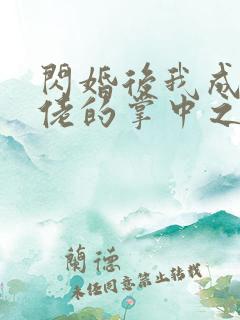 閃婚後我成
佬的掌中之
蘭德
未經同意禁止轉載